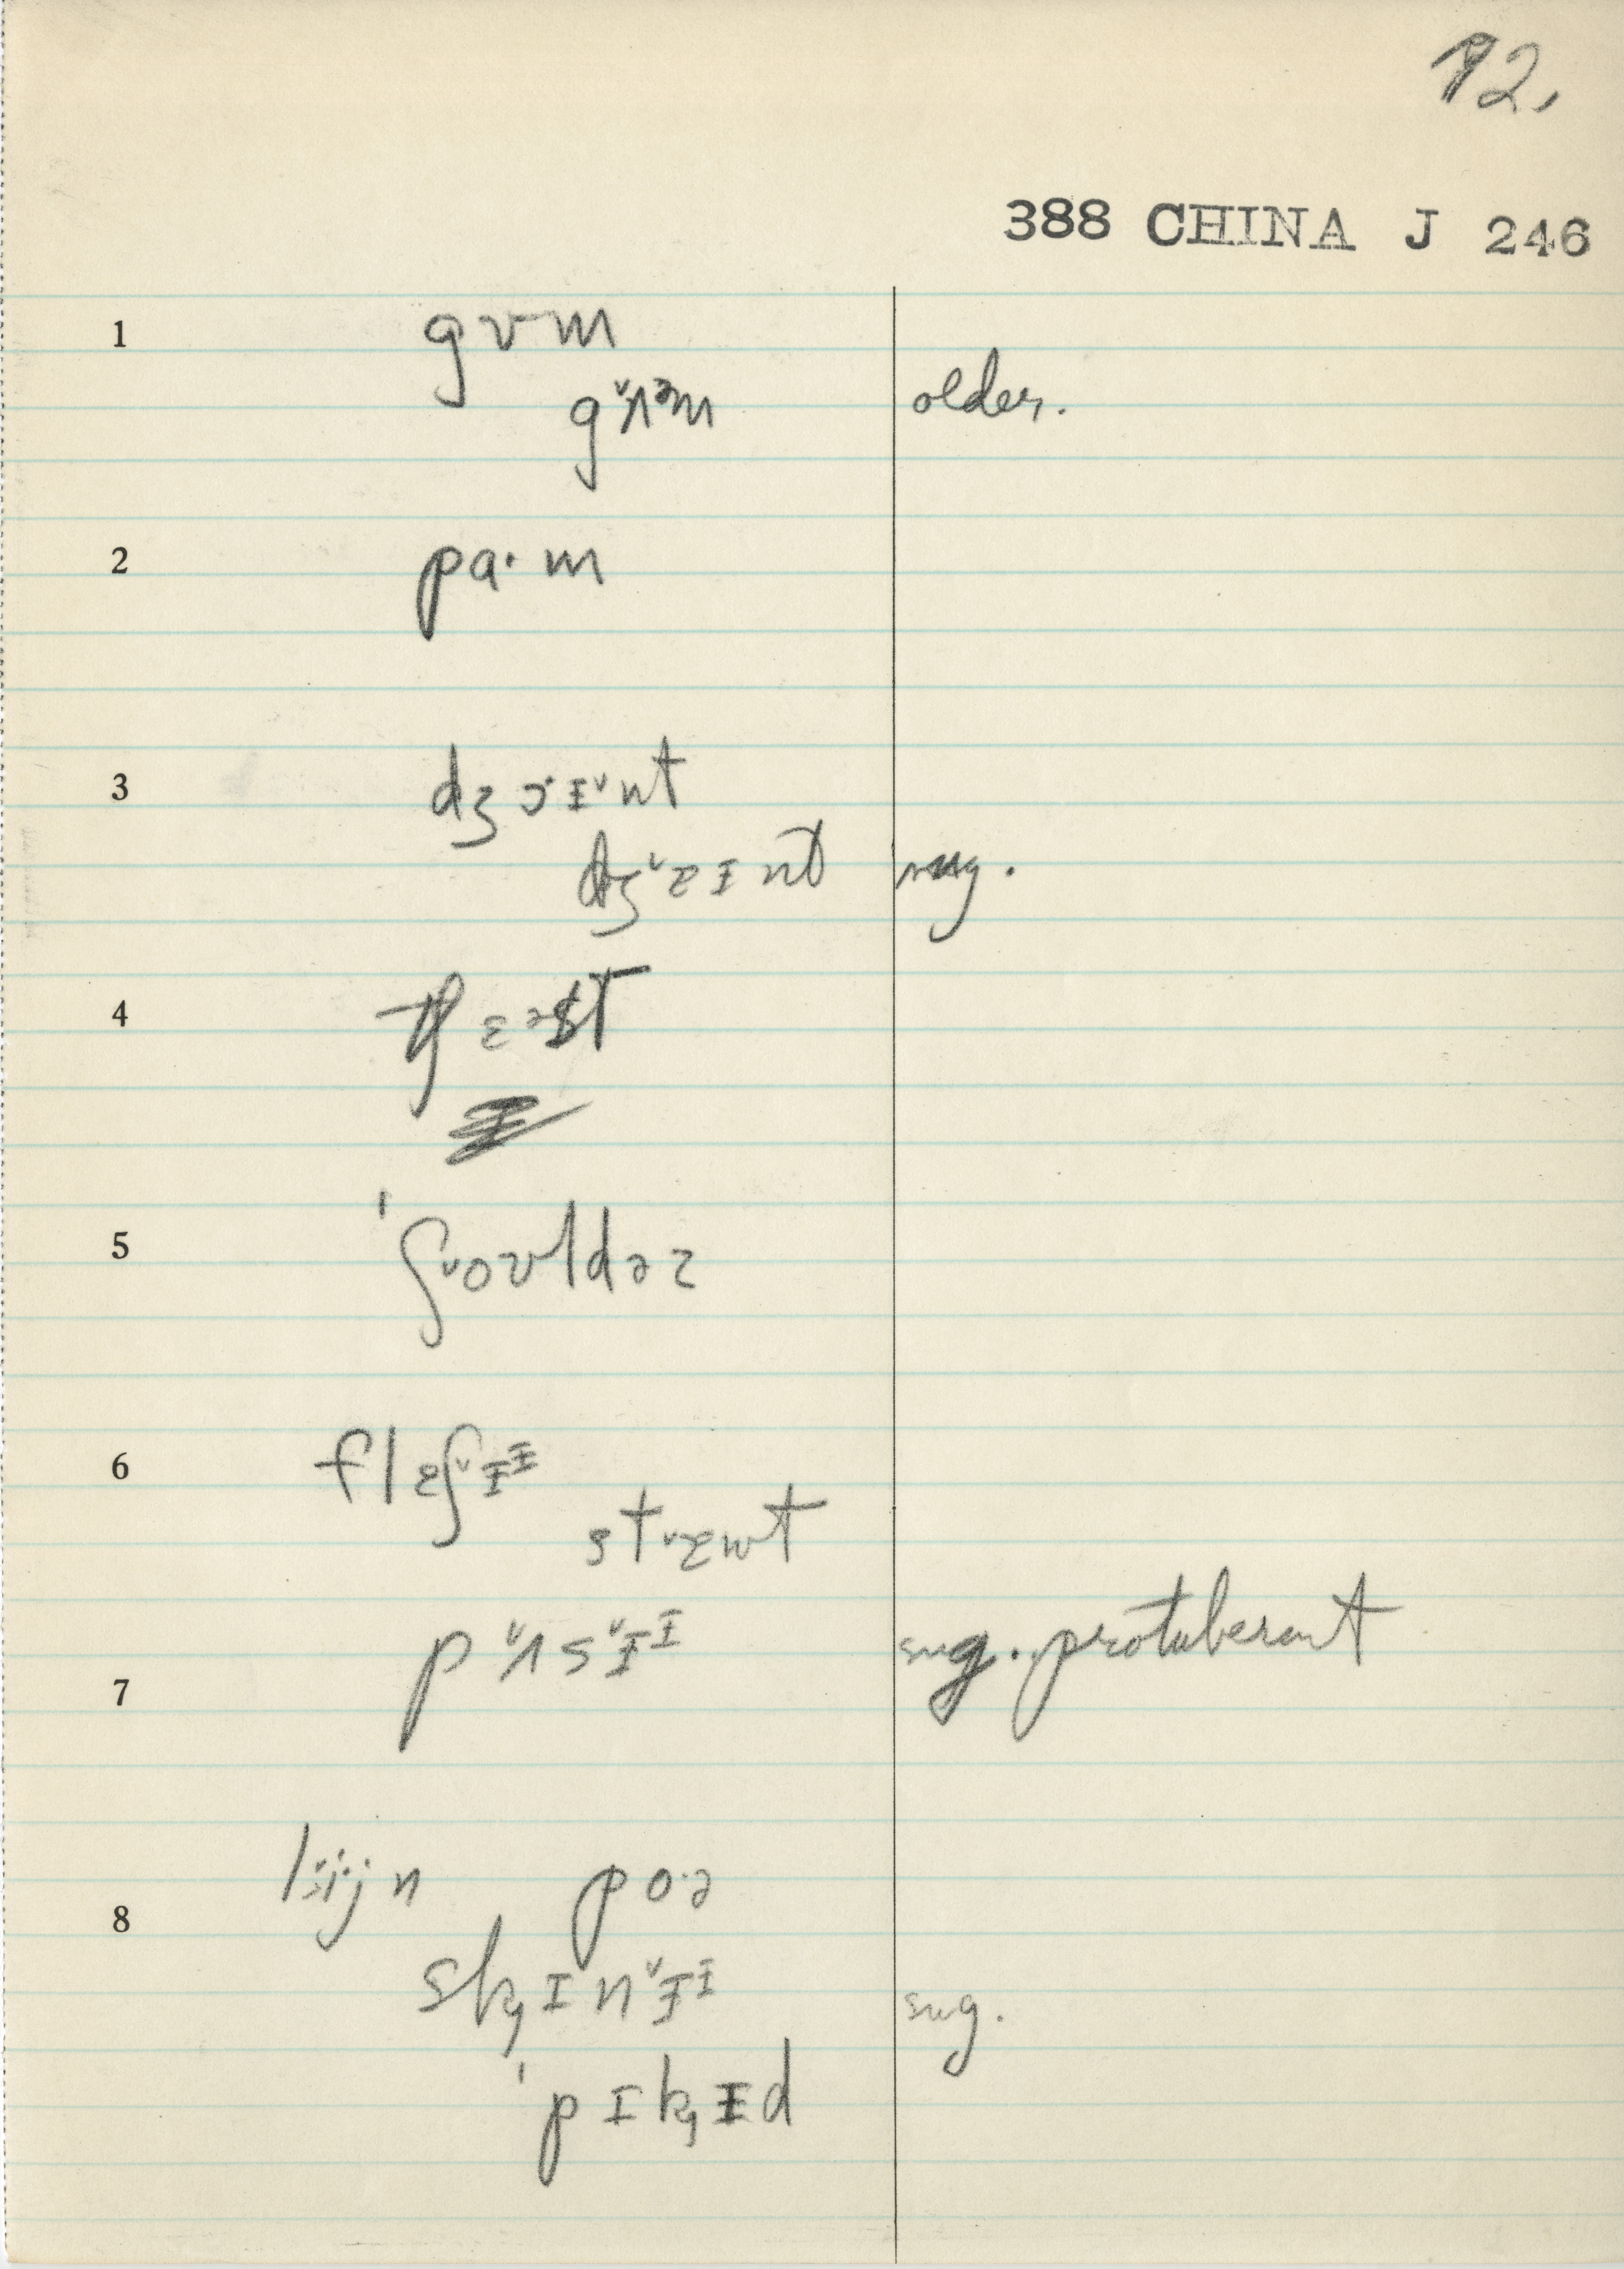 72,
388 CHINA J 246
1 gʊm
g˅ʌᵊm older.
2 pɑ·m
3 dʒɔ·ɪ˅nt
dʒ˅ɛɪnt sug.
4 tʃɛəst
5 'ʃ˅oʊldəz
6 flɛʃ˅ɨᶤ
st˅ɛwt
7 p˅ʌs˅ɨᶦ sug. protuberant
8 l i·j n po·ə
sk̡ɪn˅ɨᶦ sug.
'pɪk̡ɨd